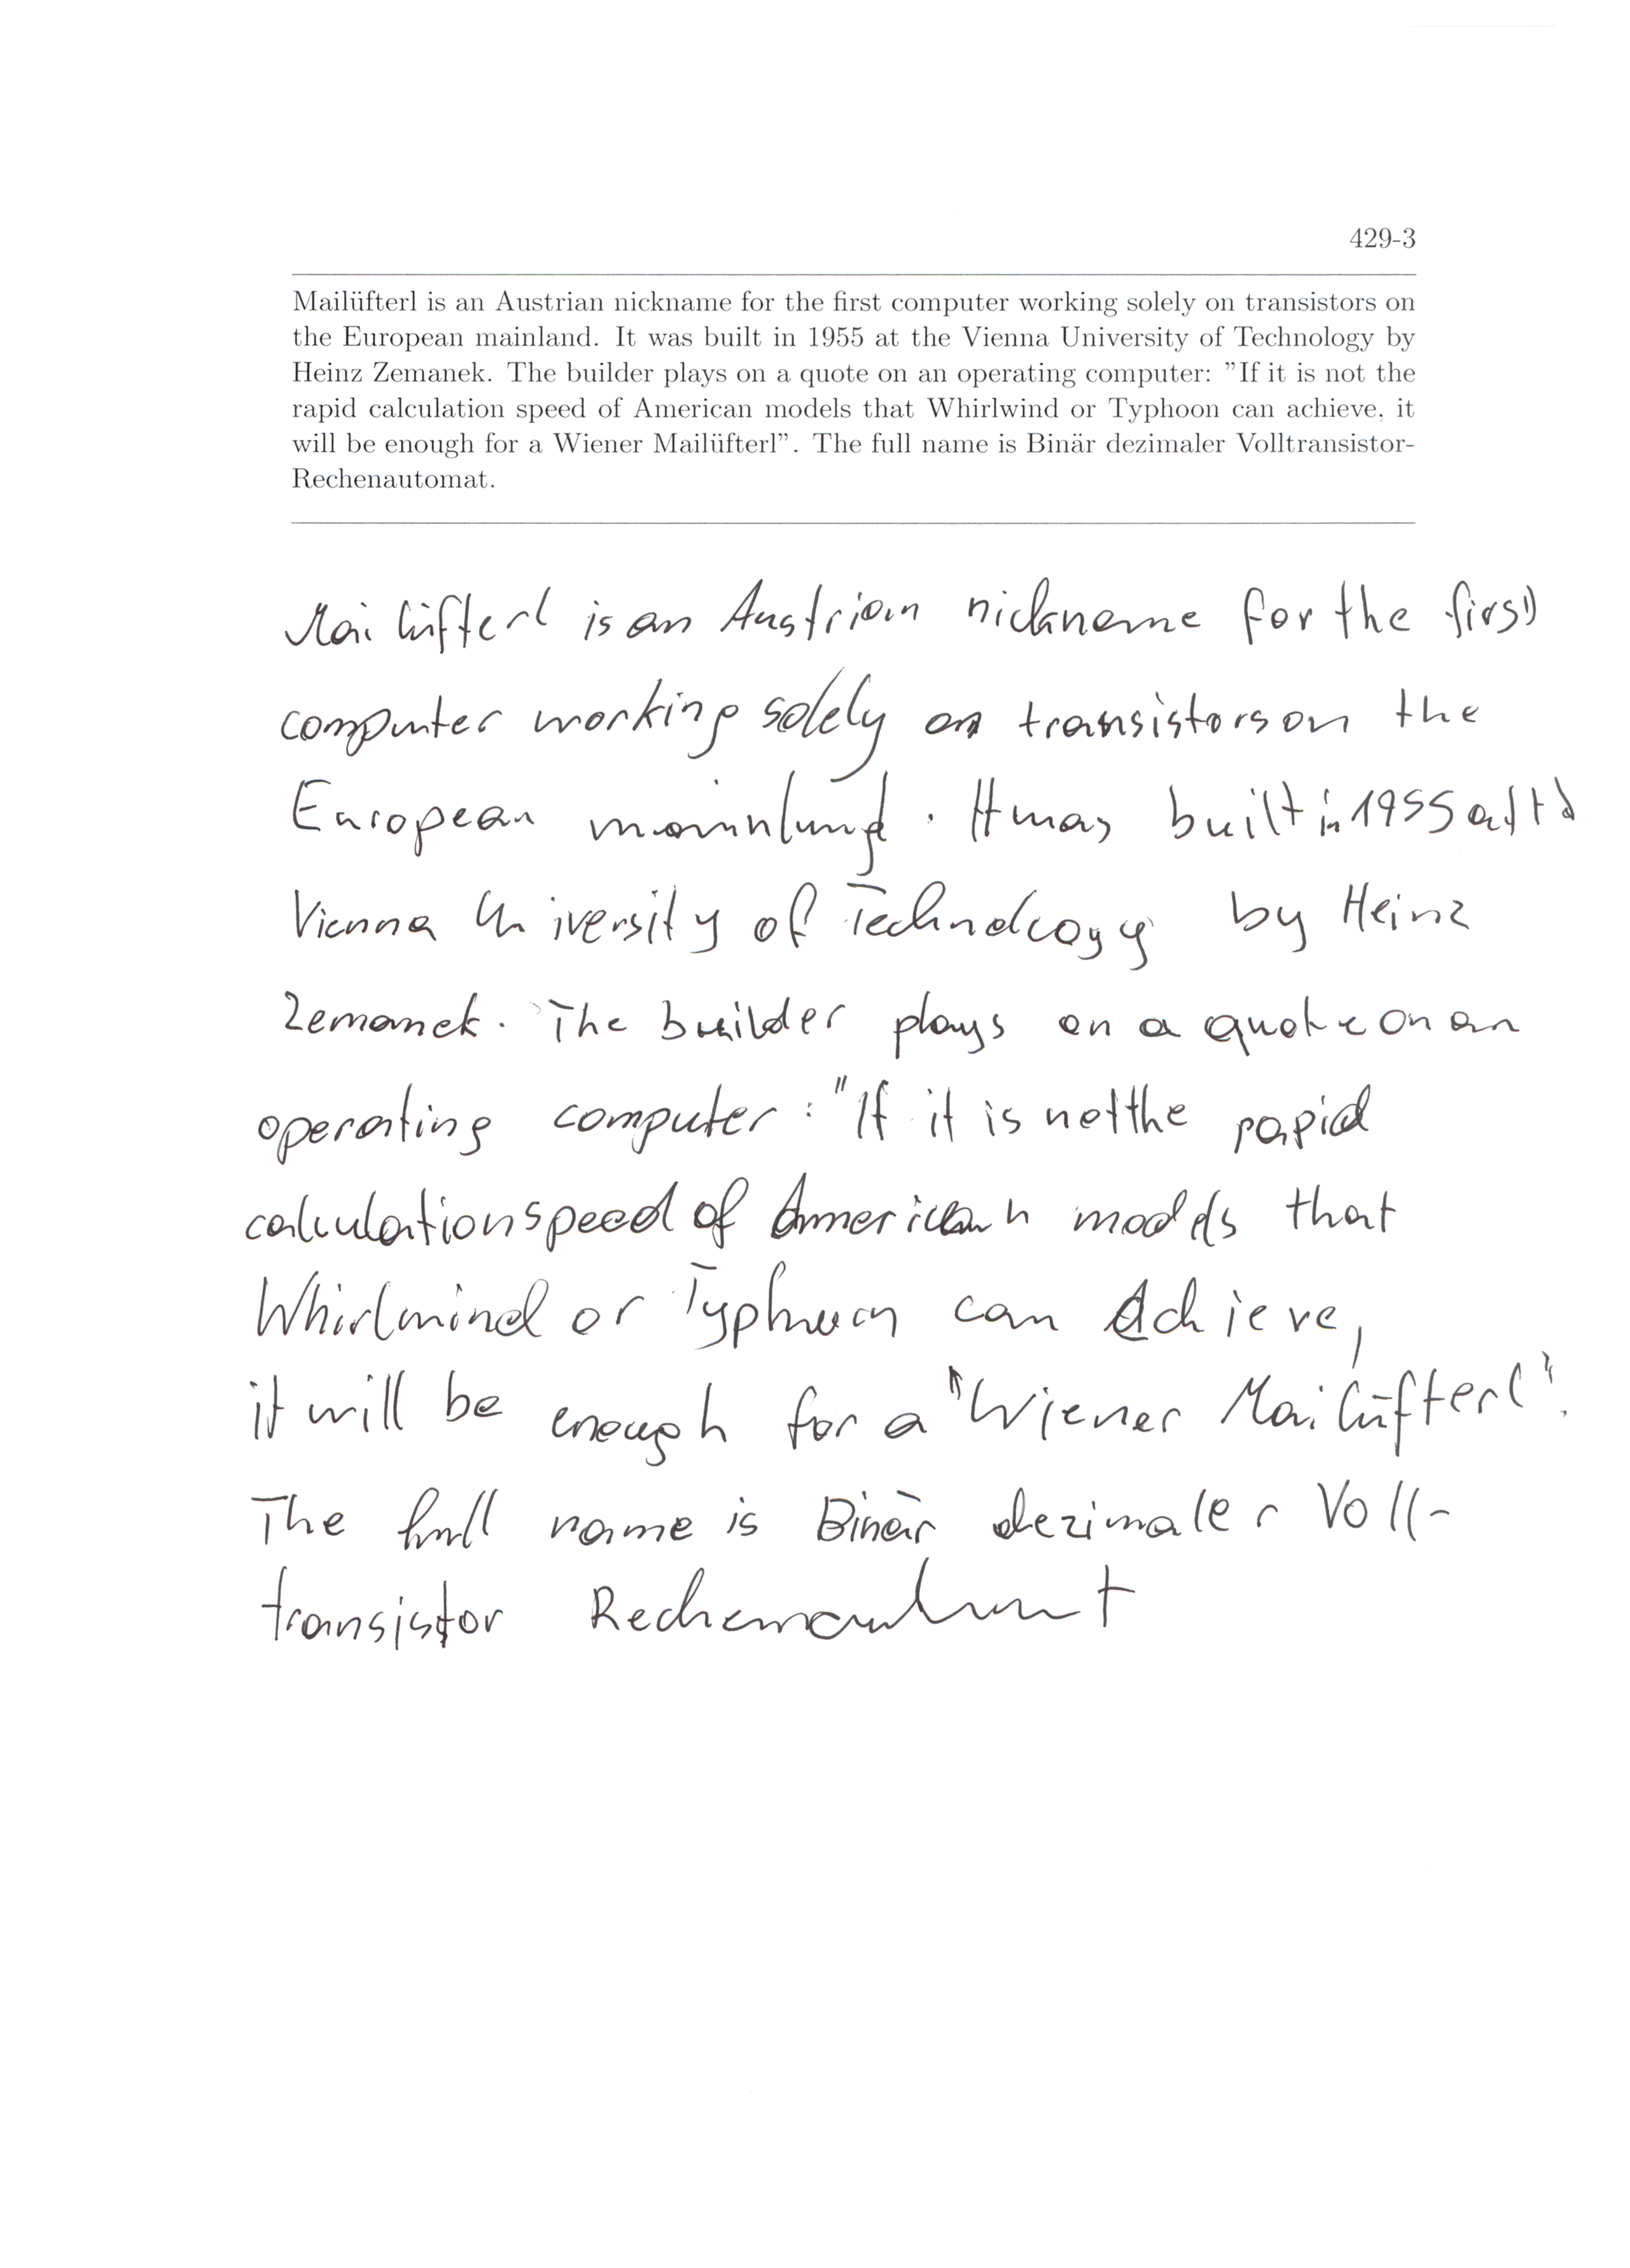 429-3
Mailüfterl is an Austrian nickname for the first computer working solely on transistors on
the European mainland. It was built in 1955 at the Vienna University of Technology by
Heinz Zemanek. The builder plays on a quote on an operating computer: "If it is not the
rapid calculation speed of American models that Whirlwind or Typhoon can achieve, it
will be enough for a Wiener Mailüfterl". The full name is Binär dezimaler Volltransistor-
Rechenautomat.
Mailüfterl is an Austrian nickname for the first
computer working solely on transistors on the
European mainland. It was built in 1955 at the
Vienna University of Technology by Heinz
Zemanek. The builder plays on a quote on an
operating computer: "If it is not the rapid
calculation speed of American models that
Whirlwind or Typhoon can achieve,
it will be enough for a "Wiener Mailüfterl".
The full name is Binär dezimaler Voll-
transistor Rechenautomat